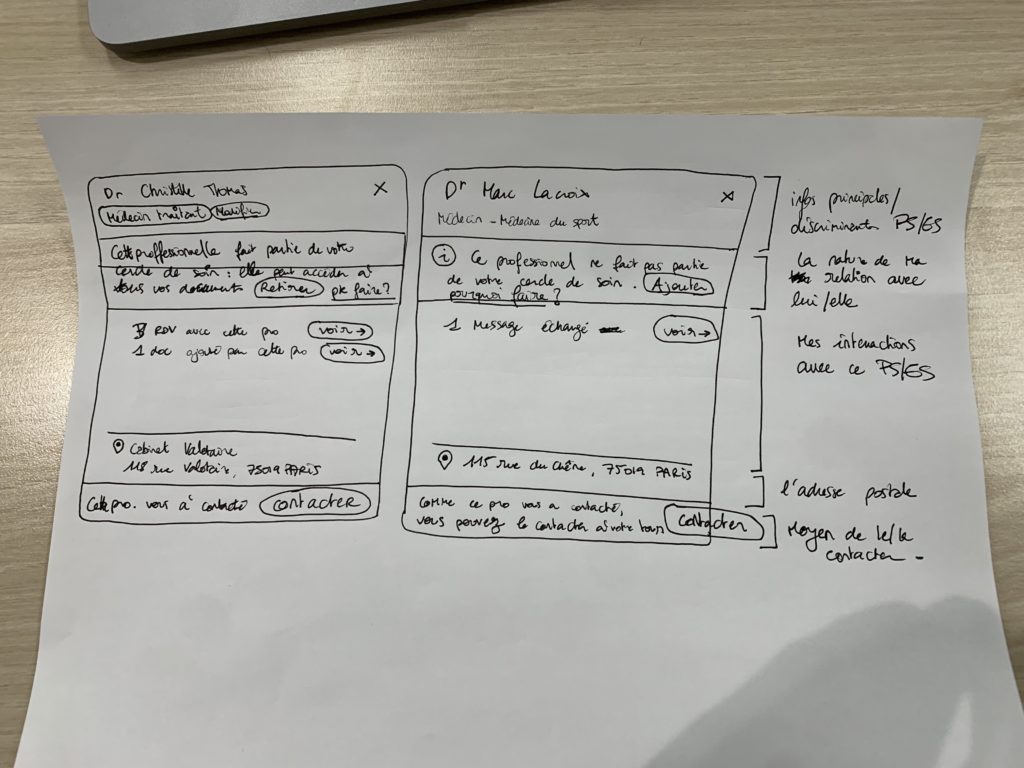 Dr Christelle Thomas X
Médecin traitant Modifier
Cette proffessionnelle fait partie de votre
cercle de soin : elle peut accéder à
tous vos documents Retirer pk faire?
3 RDV avec cette pro voir →
1 doc ajouté par cette pro voir →
Cabinet Valotaire
118 rue Volotaire, 75019 PARIS
Cette pro. vous a contacté contacter
Dr Marc Lacroix X
Médecin - Médecine du sport
i Ce professionnel ne fait pas partie
de votre cercle de soin. Ajouter
pourquoi faire ?
1 Message échangé voir →
115 rue du Chêne, 75019 PARIS
comme ce pro vous a contacté,
vous pouvez le contacter à votre tour contacter
infos principales/
discriminantes PS/ES
La nature de ma
relation avec
lui/elle
Mes interactions
avec ce PS/ES
l'adresse postale
Moyen de le/la
contacter -